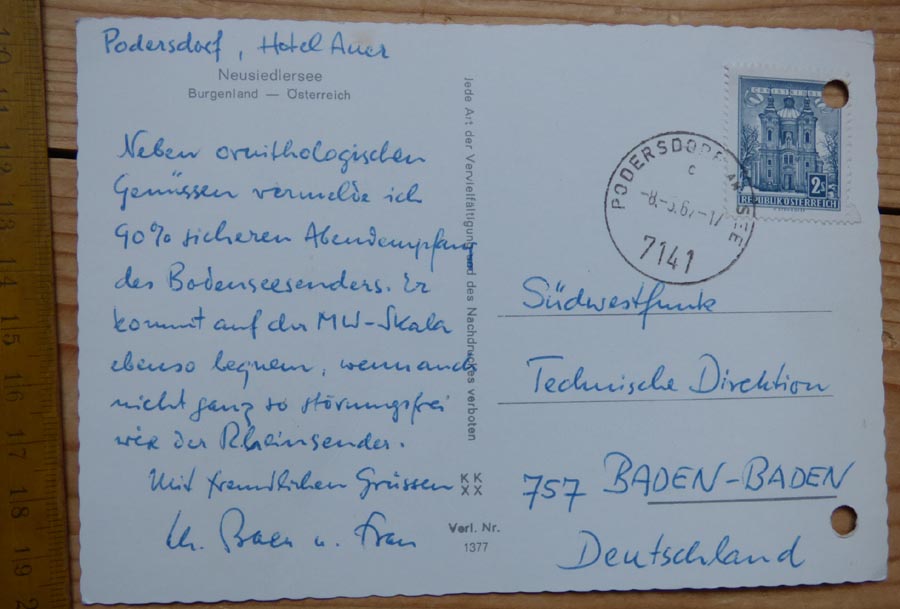 Podersdorf, Hotel Auer
Neusiedlersee
Burgenland — Österreich
Neben ornithologischen
Genüssen vermelde ich
90% sicheren Abendempfang
des Bodenseesenders. Er
kommt auf der MW-Skala
ebenso bequem, wenn auch
nicht ganz so störungsfrei
wie der Rheinsender.
Mit freundlichen Grüssen
u. Frau
Jede Art der Vervielfältigung und des Nachdruckes verboten
KK
XX
Verl. Nr.
1377
2S
REPUBLIK ÖSTERREICH
PODERSDORF AM SEE
c
7141
Südwestfunk
Technische Direktion
757 BADEN-BADEN
Deutschland
10
11
12
13
14
15
16
17
18
19